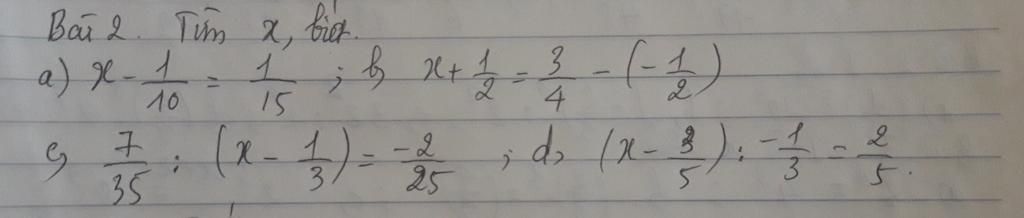 Bài 2. Tìm x, biết.
a) x - 1/10 = 1/15 ; b, x + 1/2 = 3/4 - (-1/2)
c, 7/35 : (x - 1/3) = -2/25 ; d, (x - 3/5) : -1/3 = 2/5.